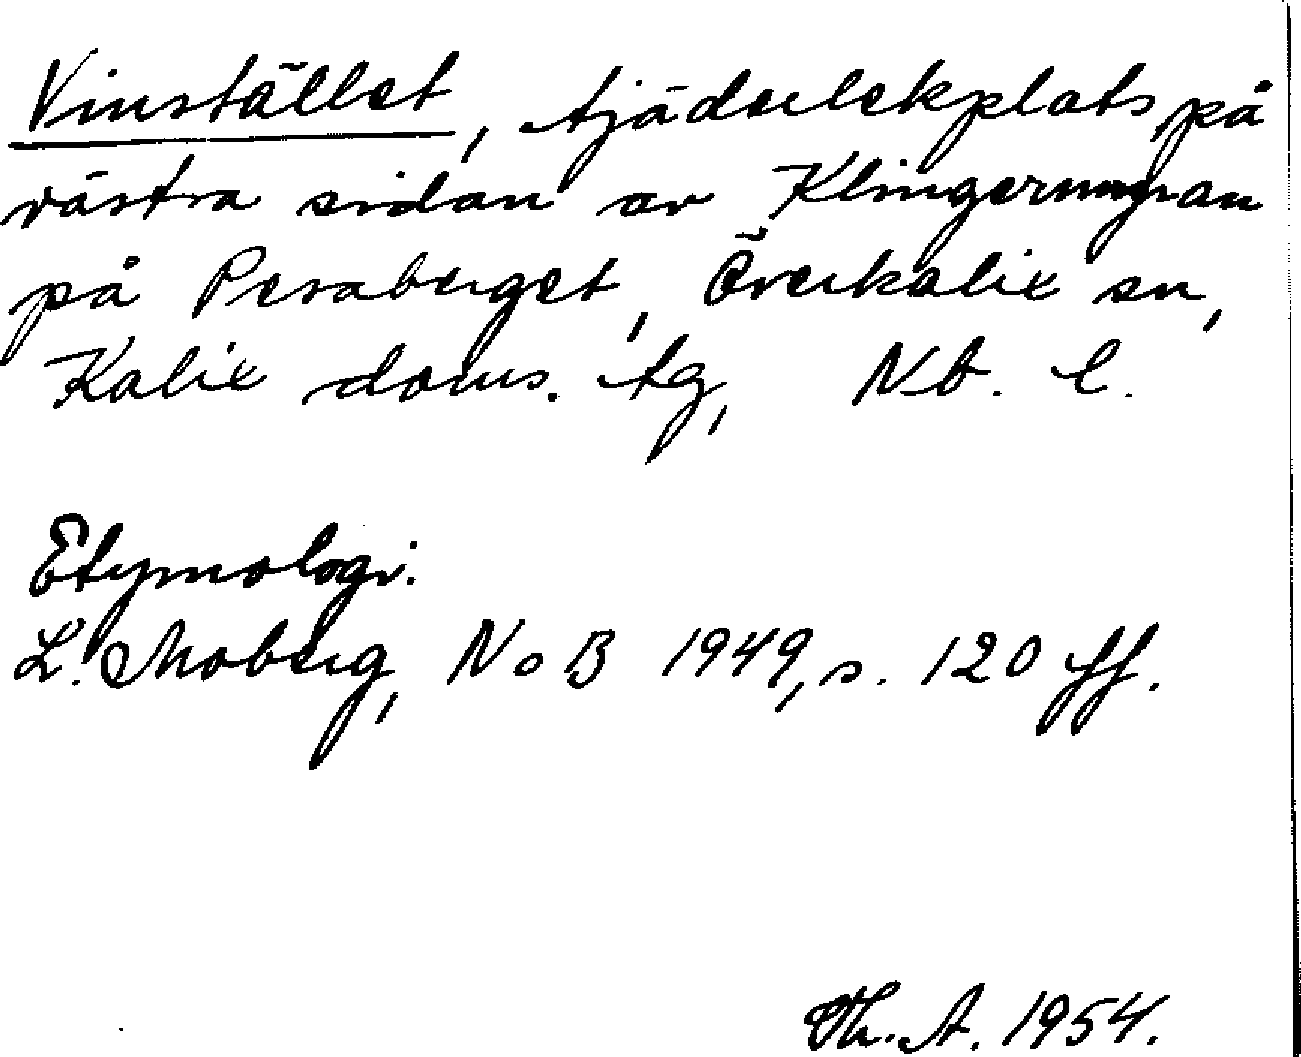 Vinstället, tjäderlekplats på
västra sidan av
på Peraberget, Överkalix sn,
Kalix doms. tg, Nb. l.
Etymologi:
L. Moberg, NoB 1949, s. 120 ff.
Th. A. 1954.